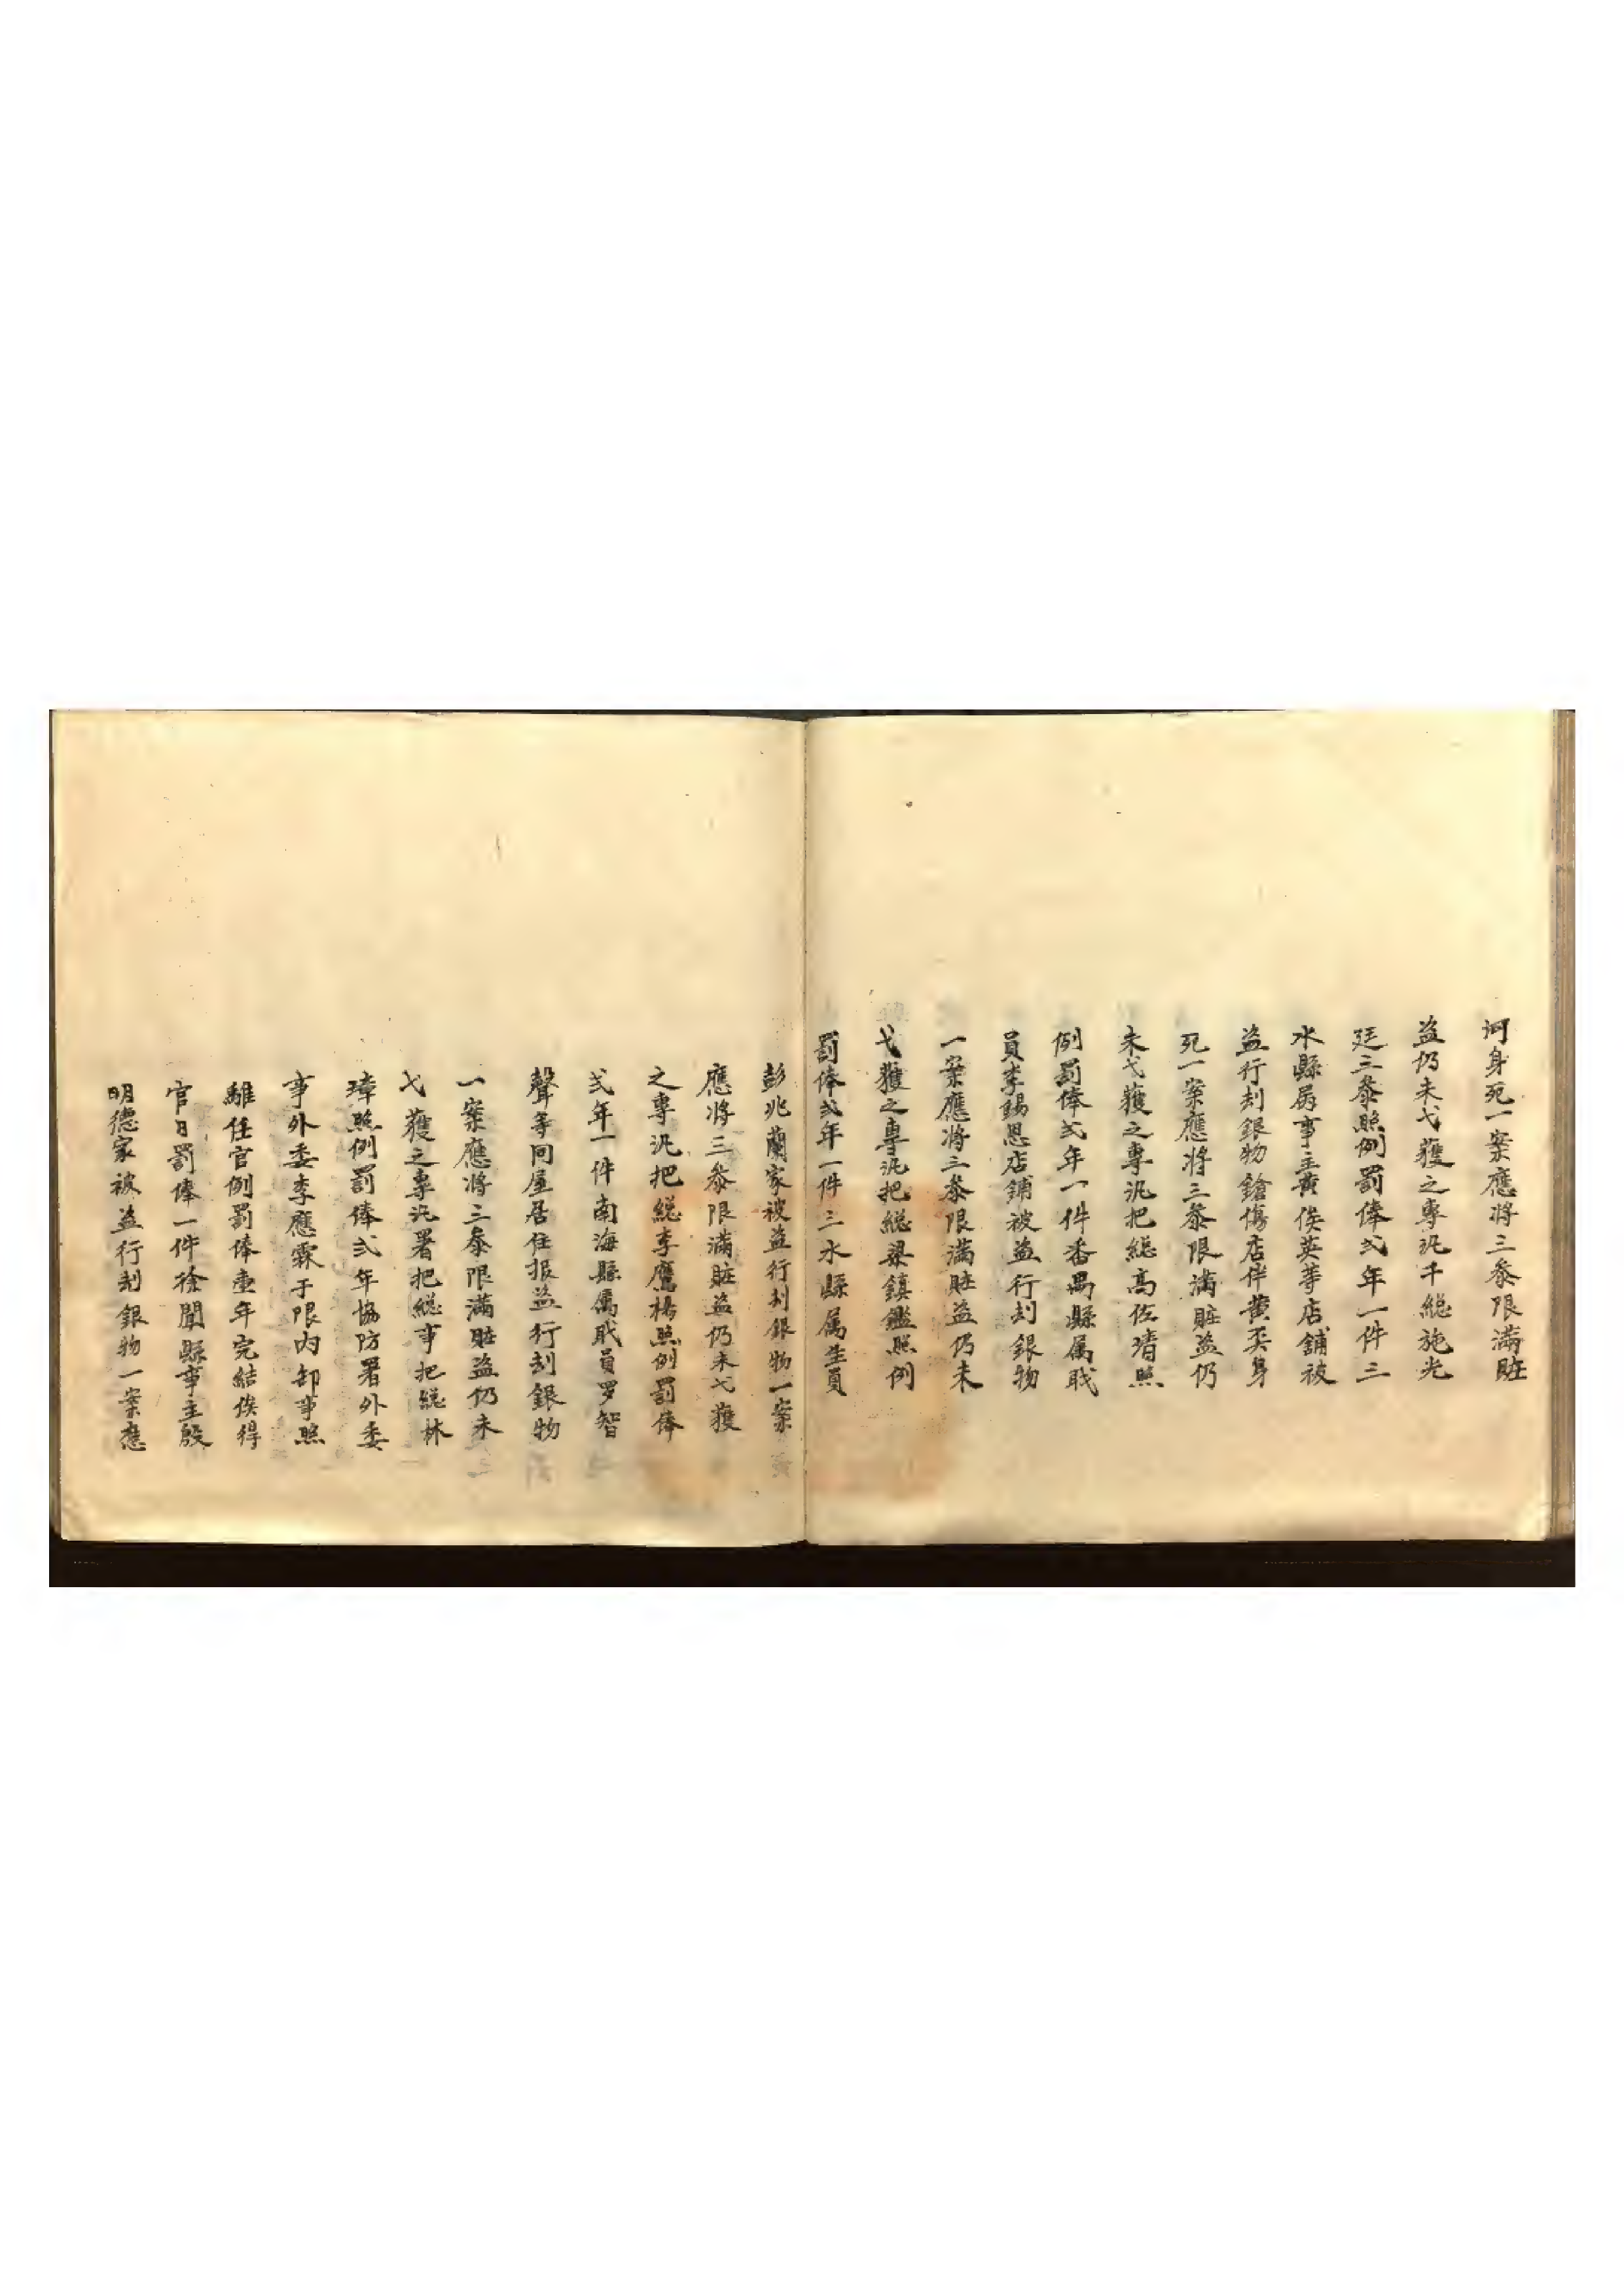 河身死一案應將三叅限滿賍
盗仍未弋獲之專汛千総施光
廷三叅照例罰俸弍年一件三
水縣屬事主黄俟英等店舖被
盗行刦銀物鎗傷店伴黄奀身
死一案應將三叅限滿賍盗仍
未弋獲之專汛把総高佐清照
例罰俸弍年一件番禺縣属戝
員李錫恩店舖被盗行刦銀物
一案應將三叅限滿賍盗仍未
弋獲之專汛把総梁鎮鑑照例
罰俸弍年一件三水縣属生員
彭兆蘭家被盗行刦銀物一案
應將三叅限滿賍盗仍未弋獲
之專汛把総李鷹揚照例罰俸
弍年一件南海縣属戝員罗智
聲等同屋居住报盗行刦銀物
一案應將三叅限滿賍盗仍未
弋獲之專汛署把総事把総林
璋照例罰俸弍年協防署外委
事外委李應霖于限内卸事照
離任官例罰俸壹年完結俟得
官日罰俸一件徐聞縣事主殷
明德家被盗行刦銀物一案應